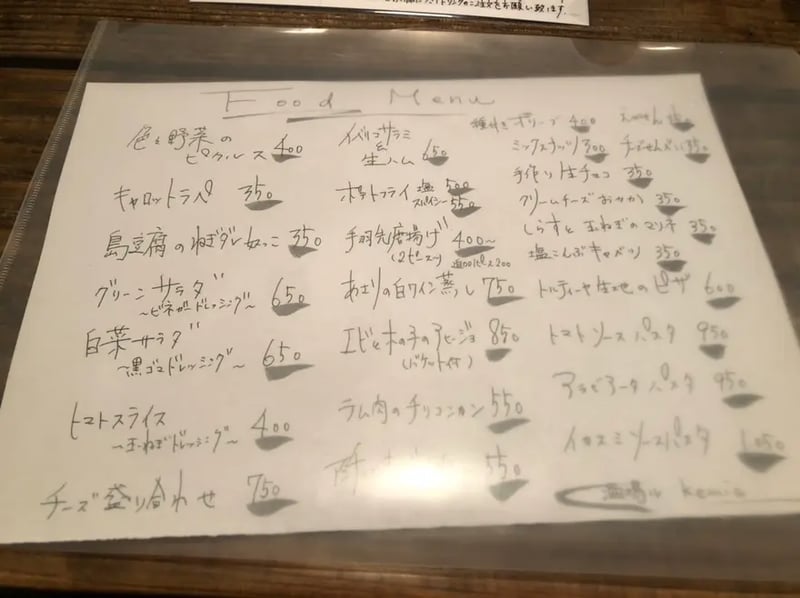 ドリンクのご注文をお願い致します。
Food Menu
色々野菜の
ピクルス 400
キャロットラペ 350
島豆腐のねぎダレ奴っこ 350
グリーンサラダ 650
〜ビネガードレッシング〜
白菜サラダ 650
〜黒ゴマドレッシング〜
トマトスライス 400
〜玉ねぎドレッシング〜
チーズ盛り合わせ 750
イベリコサラミ
&
生ハム 650
ポテトフライ 塩 500
スパイシー 550
手羽先唐揚げ 400〜
(2ピース〜) 追加1P 200
あさりの白ワイン蒸し 750
エビと木の子のアヒージョ 850
(バケット付)
ラム肉のチリコンカン 550
550
種付きオリーブ 400
ミックスナッツ 300
チーズせんべい 350
手作り生チョコ 350
クリームチーズおかか 350
しらすと玉ねぎのマリネ 350
塩こんぶキャベツ 350
トルティーヤ生地のピザ 600
トマトソースパスタ 950
アラビアータパスタ 950
イカスミソースパスタ 1,050
酒場ル kemia